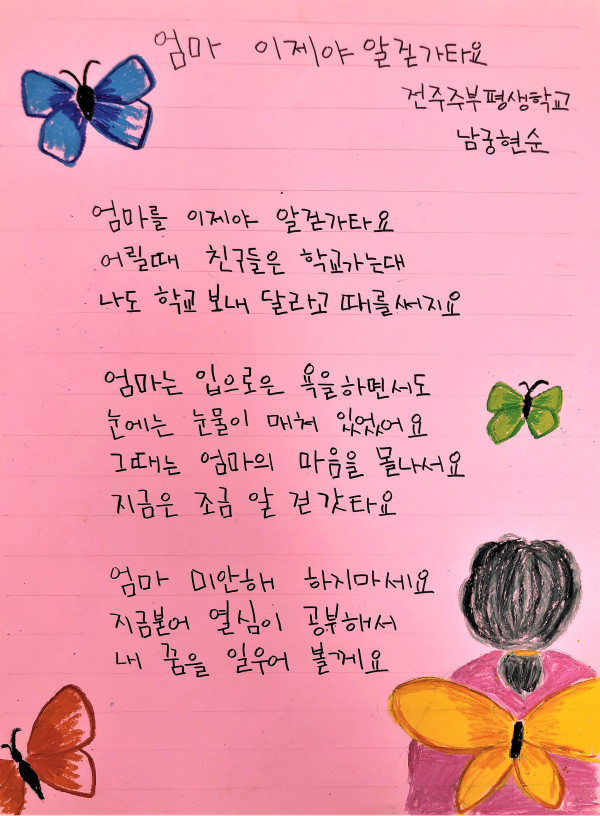 엄마 이제야 알걷가타요
전주주부평생학교
남궁현순
엄마를 이제야 알걷가타요
어릴때 친구들은 학교가는대
나도 학교보내 달라고 때를써지요
엄마는 입으로은 욕을하면서도
눈에는 눈물이 매쳐 있었어요
그때는 엄마의 마음을 몰나서요
지금은 조금 알 걷 갓타요
엄마 미안해 하지마세요
지금붇어 열심이 공부해서
내 꿈을 일우어 볼께요